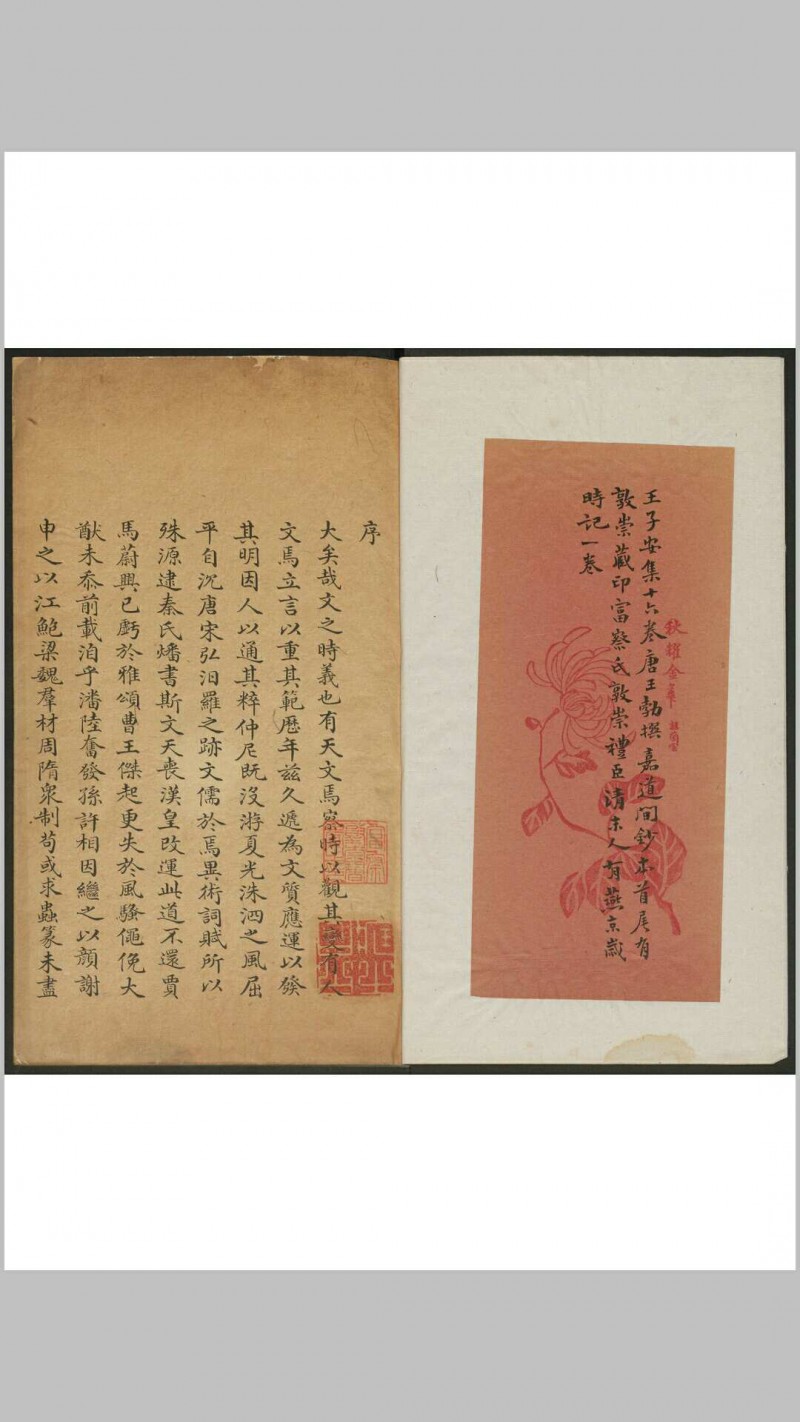 王子安集十六卷唐王勃撰嘉道间鈔本首尾有
敦崇藏印富察氏敦崇禮臣清末人有燕京歲
時記一卷
秋耀金華
序
大矣哉文之時義也有天文焉察時以觀其變有人
文焉立言以重其範歷年兹久遞為文質應運以發
其明因人以通其粹仲尼既没游夏光洙泗之風屈
平自沉唐宋弘汨羅之跡文儒於焉異術詞賦所以
殊源逮秦氏燔書斯文天喪漢皇改運此道不還賈
馬蔚興已虧於雅頌曹王傑起更失於風騷僶俛大
猷未忝前載洎乎潘陸奮發孫許相因繼之以顔謝
申之以江鮑梁魏羣材周隋衆制苟或求蟲篆未盡